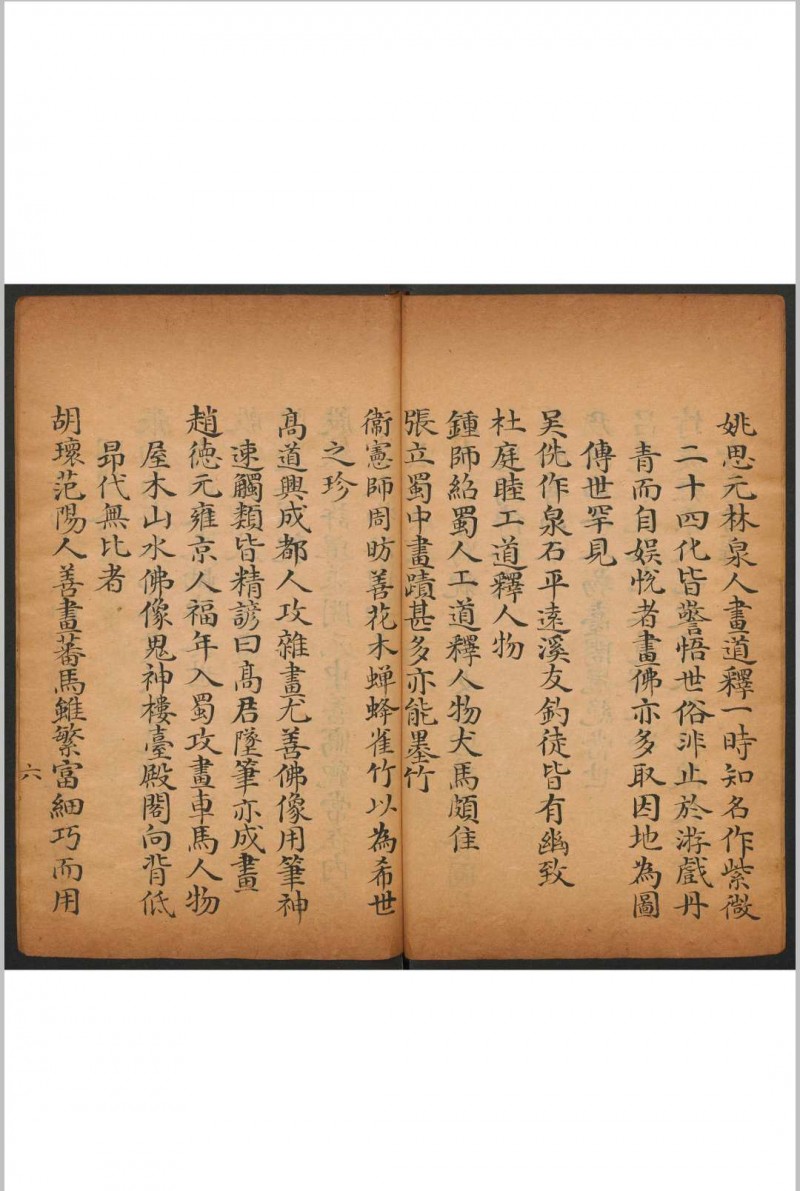 姚思元林泉人畫道釋一時知名作紫微
二十四化皆警悟世俗非止於游戲丹
青而自娛悅者畫佛亦多取因地為圖
傳世罕見
吴侁作泉石平遠溪友釣徒皆有幽致
杜庭睦工道釋人物
鍾師紹蜀人工道釋人物犬馬頗佳
張立蜀中畫蹟甚多亦能墨竹
衞憲師周昉善花木蟬蜂雀竹以為希世
之珍
髙道興成都人攻雜畫尤善佛像用筆神
速觸類皆精諺曰髙君墜筆亦成畫
趙德元雍京人福年入蜀攻畫車馬人物
屋木山水佛像鬼神樓臺殿閣向背低
昻代無比者
胡瓌范陽人善畫蕃馬雖繁富細巧而用
六